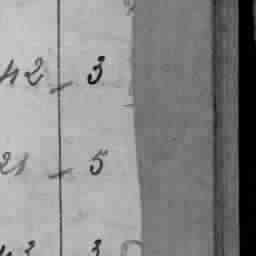 42 - 3
21 - 5